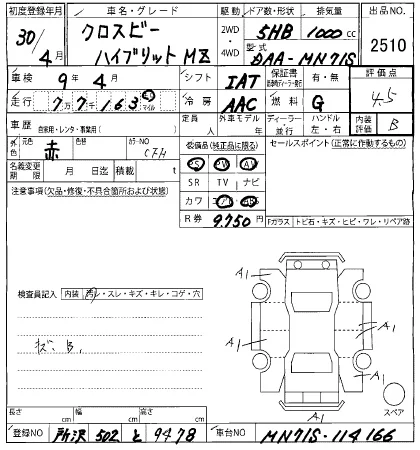 初度登録年月 車名・グレード 駆動 ドア数・形状 排気量 出品NO.
30/4月 クロスビー ハイブリットMZ 2WD・4WD 5HB 1000cc 2510
型式 DAA-MN71S
車検 9年4月 シフト IAT 保証書 有・無 評価点 4.5
走行 7万7千163 km マイル 冷房 AAC 燃料 G
車歴 自家用・レンタ・事業用( ) 定員 人 外車モデル 年 ディーラー・並行 ハンドル 左・右 内装評価 B
外色 元色 赤 色替 カラーNO CFH 装備品(純正品に限る) セールスポイント(正常に動作するもの)
PS PW AW
名義変更期限 月 日迄 積載 t SR TV ナビ
注意事項(欠品・修復・不具合箇所および状態) カワ エアB AB
R券 9,750円 Fガラス トビ石・キズ・ヒビ・ワレ・リペア跡
検査員記入 内装 汚・スレ・キズ・キレ・コゲ・穴
A1 A1
A1 A1
A1
A1
スペア
長さ cm 幅 cm 高さ cm
登録NO 所沢 502 と 9478 車台NO MN71S-114166